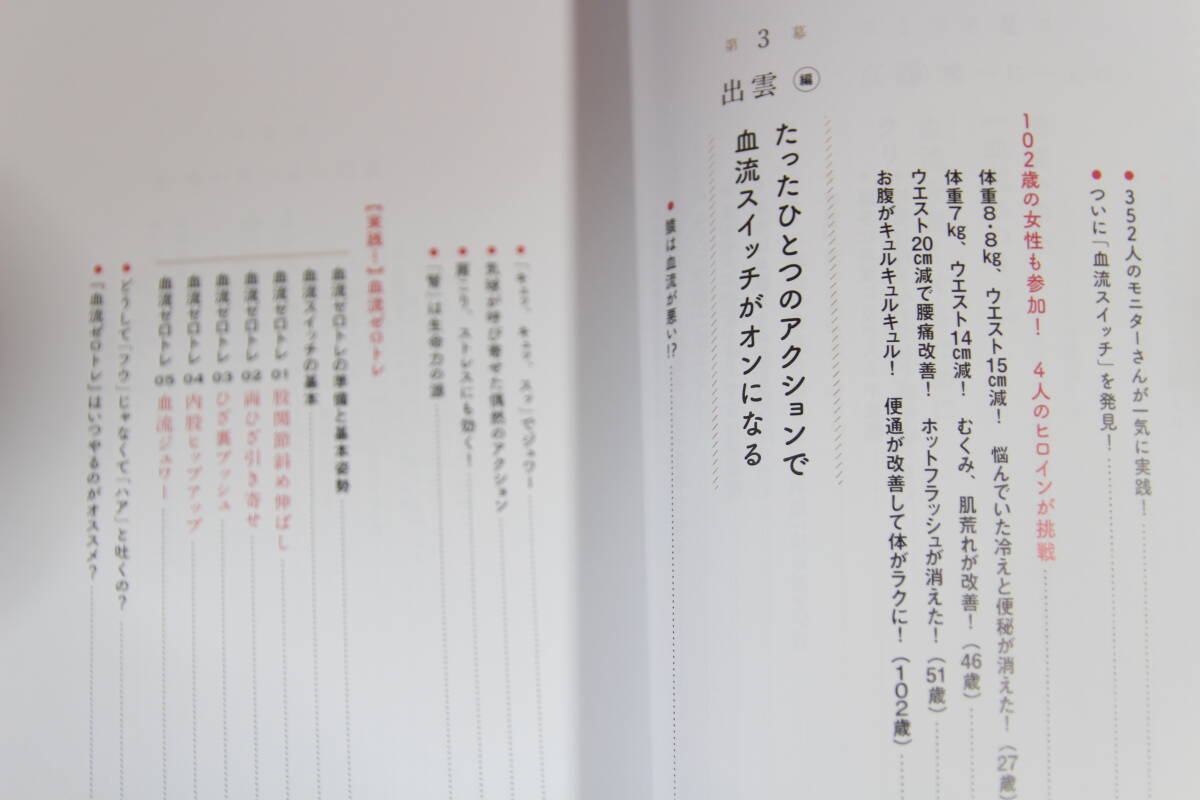 ●352人のモニターさんが一気に実践！
●ついに「血流スイッチ」を発見！
102歳の女性も参加！ 4人のヒロインが挑戦
体重8・8kg、ウエスト15cm減！ 悩んでいた冷えと便秘が消えた！（27歳）
体重7kg、ウエスト14cm減！ むくみ、肌荒れが改善！（46歳）
ウエスト20cm減で腰痛改善！ ホットフラッシュが消えた！（51歳）
お腹がキュルキュルキュル！ 便通が改善して体がラクに！（102歳）
第3幕
出雲 編
たったひとつのアクションで
血流スイッチがオンになる
は血流が悪い!?
●「キュッ、キュッ、スッ」でジュワー
が呼び寄せた偶然のアクション
●肩こり、ストレスにも効く！
は生命力の源
【実践！】血流ゼロトレ
血流ゼロトレの準備と基本姿勢
血流スイッチの基本
血流ゼロトレ 01 股関節斜め伸ばし
血流ゼロトレ 02 両ひざ引き寄せ
血流ゼロトレ 03 ひざ裏プッシュ
血流ゼロトレ 04 内股ヒップアップ
血流ゼロトレ 05 血流ジュワー
●どうして「フゥ」じゃなくて「ハア」と吐くの？
●『血流ゼロトレ』はいつやるのがオススメ？